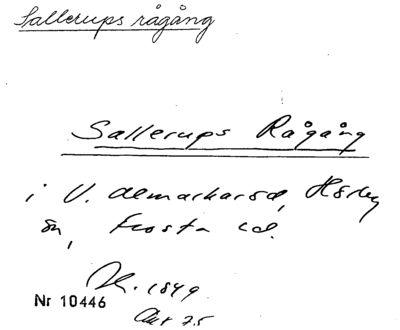 Sallerups rågång
Sallerups Rågång
i V. Olmarkaröd, Hörby
sn, Frosta hd.
K. 1849
Nr 10446
Akt 75